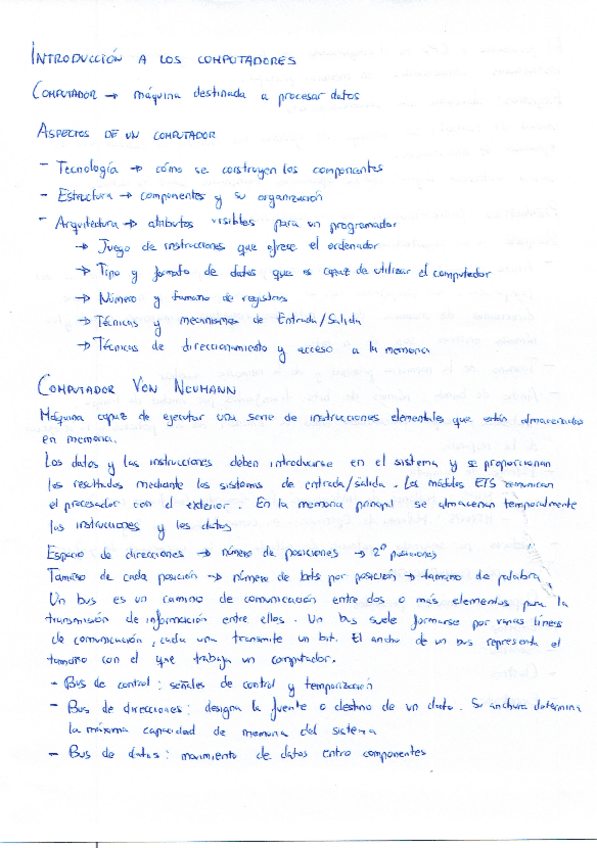 INTRODUCCIÓN A LOS COMPUTADORES
COMPUTADOR → máquina destinada a procesar datos
ASPECTOS DE UN COMPUTADOR
- Tecnología → cómo se construyen los componentes
- Estructura → componentes y su organización
- Arquitectura → atributos visibles para un programador
→ Juego de instrucciones que ofrece el ordenador
→ Tipo y formato de datos que es capaz de utilizar el computador
→ Número y tamaño de registros
→ Técnicas y mecanismos de Entrada/Salida
→ Técnicas de direccionamiento y acceso a la memoria
COMPUTADOR VON NEUMANN
Máquina capaz de ejecutar una serie de instrucciones elementales que están almacenadas
en memoria.
Los datos y las instrucciones deben introducirse en el sistema y se proporcionan
los resultados mediante los sistemas de entrada/salida. Los módulos E/S comunican
el procesador con el exterior. En la memoria principal se almacenan temporalmente
las instrucciones y los datos
Espacio de direcciones → número de posiciones → 2ⁿ posiciones
Tamaño de cada posición → número de bits por posición → tamaño de palabra
Un bus es un camino de comunicación entre dos o más elementos para la
transmisión de información entre ellos. Un bus suele formarse por varias líneas
de comunicación, cada una transmite un bit. El ancho de un bus representa el
tamaño con el que trabaja un computador.
- Bus de control: señales de control y temporización
- Bus de direcciones: designa la fuente o destino de un dato. Su anchura determina
la máxima capacidad de memoria del sistema
- Bus de datos: movimiento de datos entre componentes